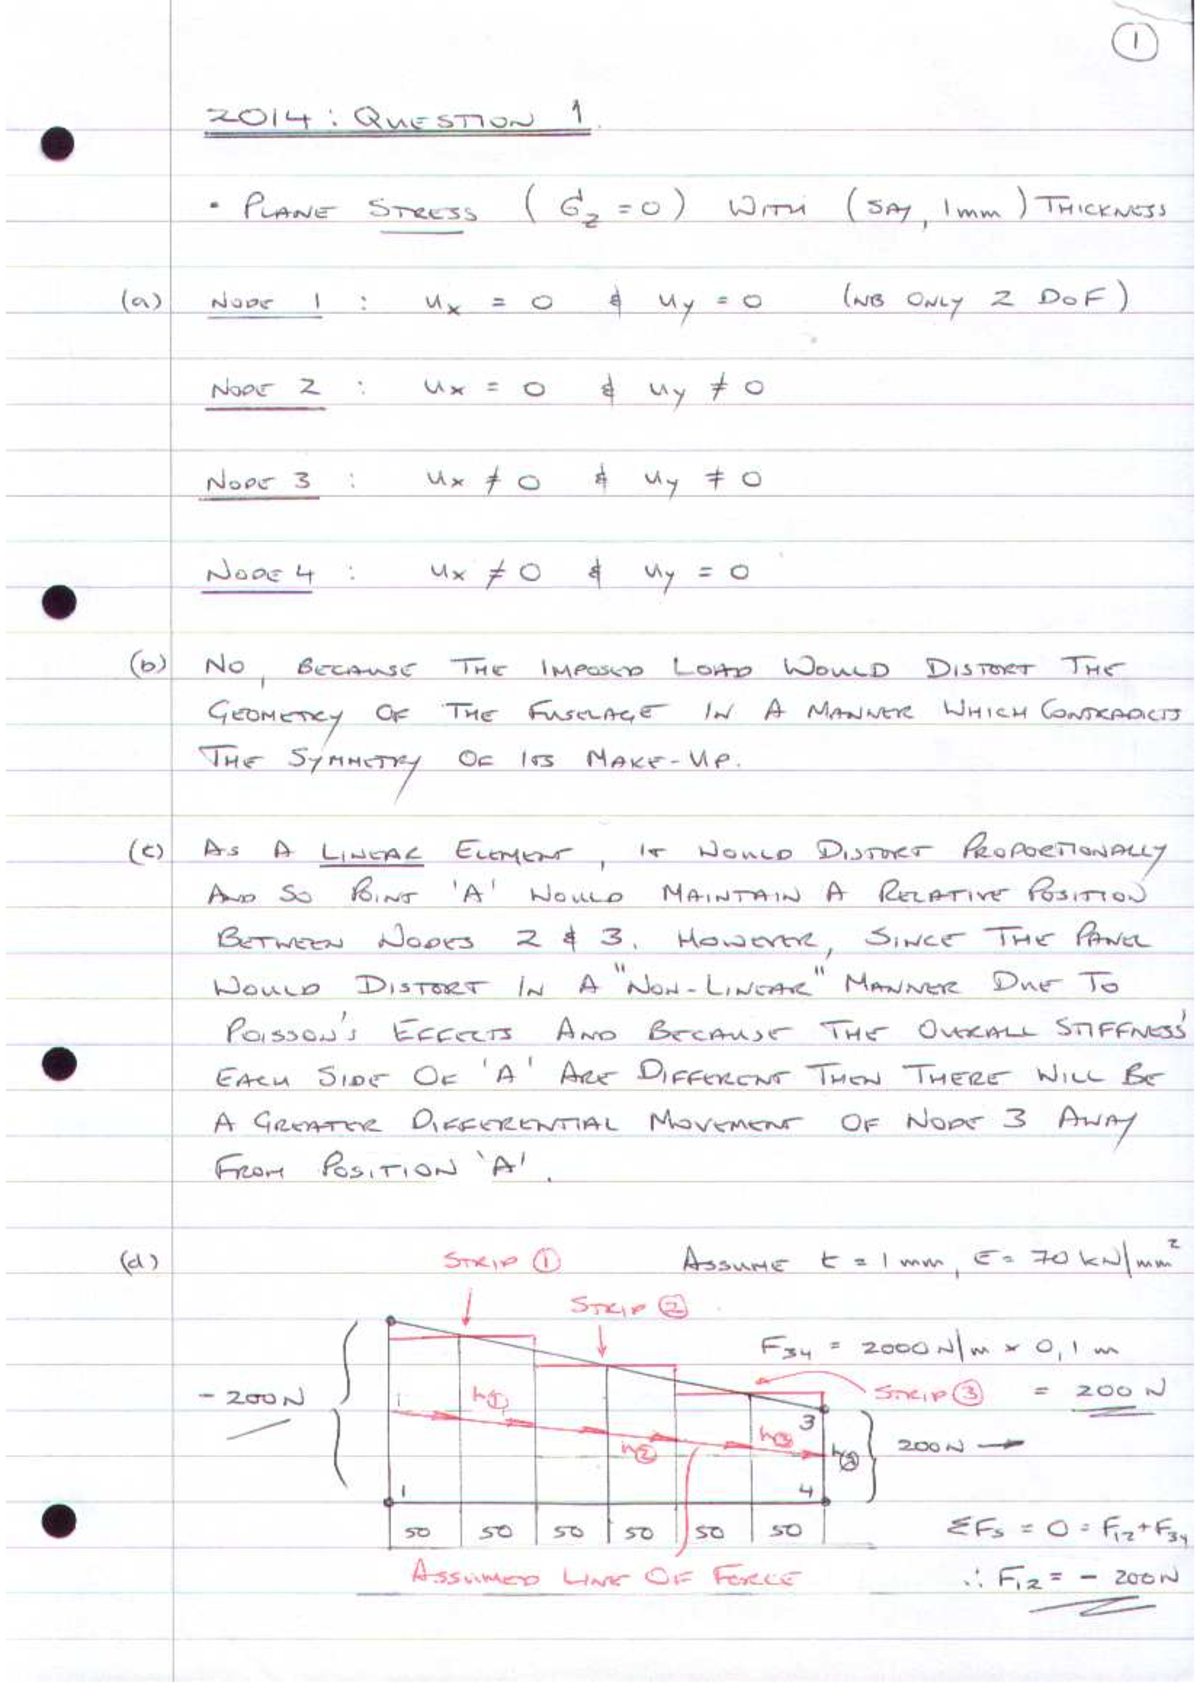 1
2014 : QUESTION 1.
• PLANE STRESS ( σz = 0 ) WITH (SAY, 1mm) THICKNESS
(a) NODE 1 : ux = 0 & uy = 0 (NB ONLY 2 DOF)
NODE 2 : ux = 0 & uy ≠ 0
NODE 3 : ux ≠ 0 & uy ≠ 0
NODE 4 : ux ≠ 0 & uy = 0
(b) NO, BECAUSE THE IMPOSED LOAD WOULD DISTORT THE
GEOMETRY OF THE FUSELAGE IN A MANNER WHICH CONTRADICTS
THE SYMMETRY OF ITS MAKE-UP.
(c) AS A LINEAR ELEMENT, IT WOULD DISTORT PROPORTIONALLY
AND SO POINT 'A' WOULD MAINTAIN A RELATIVE POSITION
BETWEEN NODES 2 & 3. HOWEVER, SINCE THE PANEL
WOULD DISTORT IN A "NON-LINEAR" MANNER DUE TO
POISSON'S EFFECTS AND BECAUSE THE OVERALL STIFFNESS'
EACH SIDE OF 'A' ARE DIFFERENT THEN THERE WILL BE
A GREATER DIFFERENTIAL MOVEMENT OF NODE 3 AWAY
FROM POSITION 'A'.
(d) STRIP ① ASSUME t = 1mm, E = 70 kN/mm²
STRIP ②
F34 = 2000 N/m × 0,1 m
- 200N STRIP ③ = 200 N
h① h② h③
3
200N →
1 4
50 50 50 50 50 50
ΣFS = 0 = F12 + F34
ASSUMED LINE OF FORCE
∴ F12 = - 200N